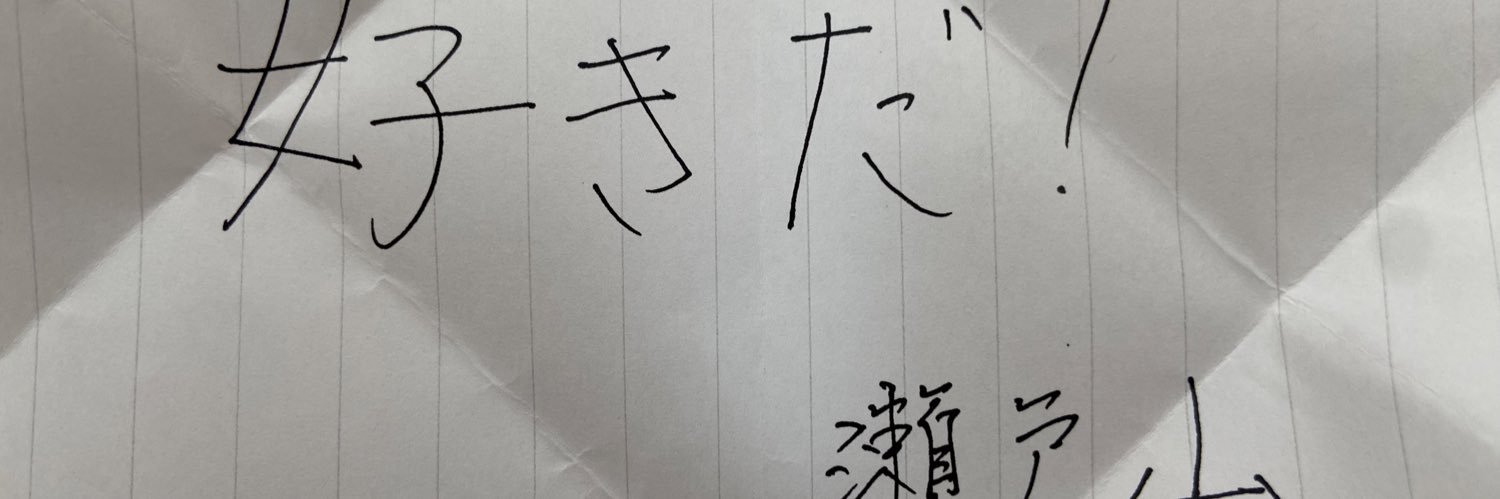 好きだ!
瀬戸山